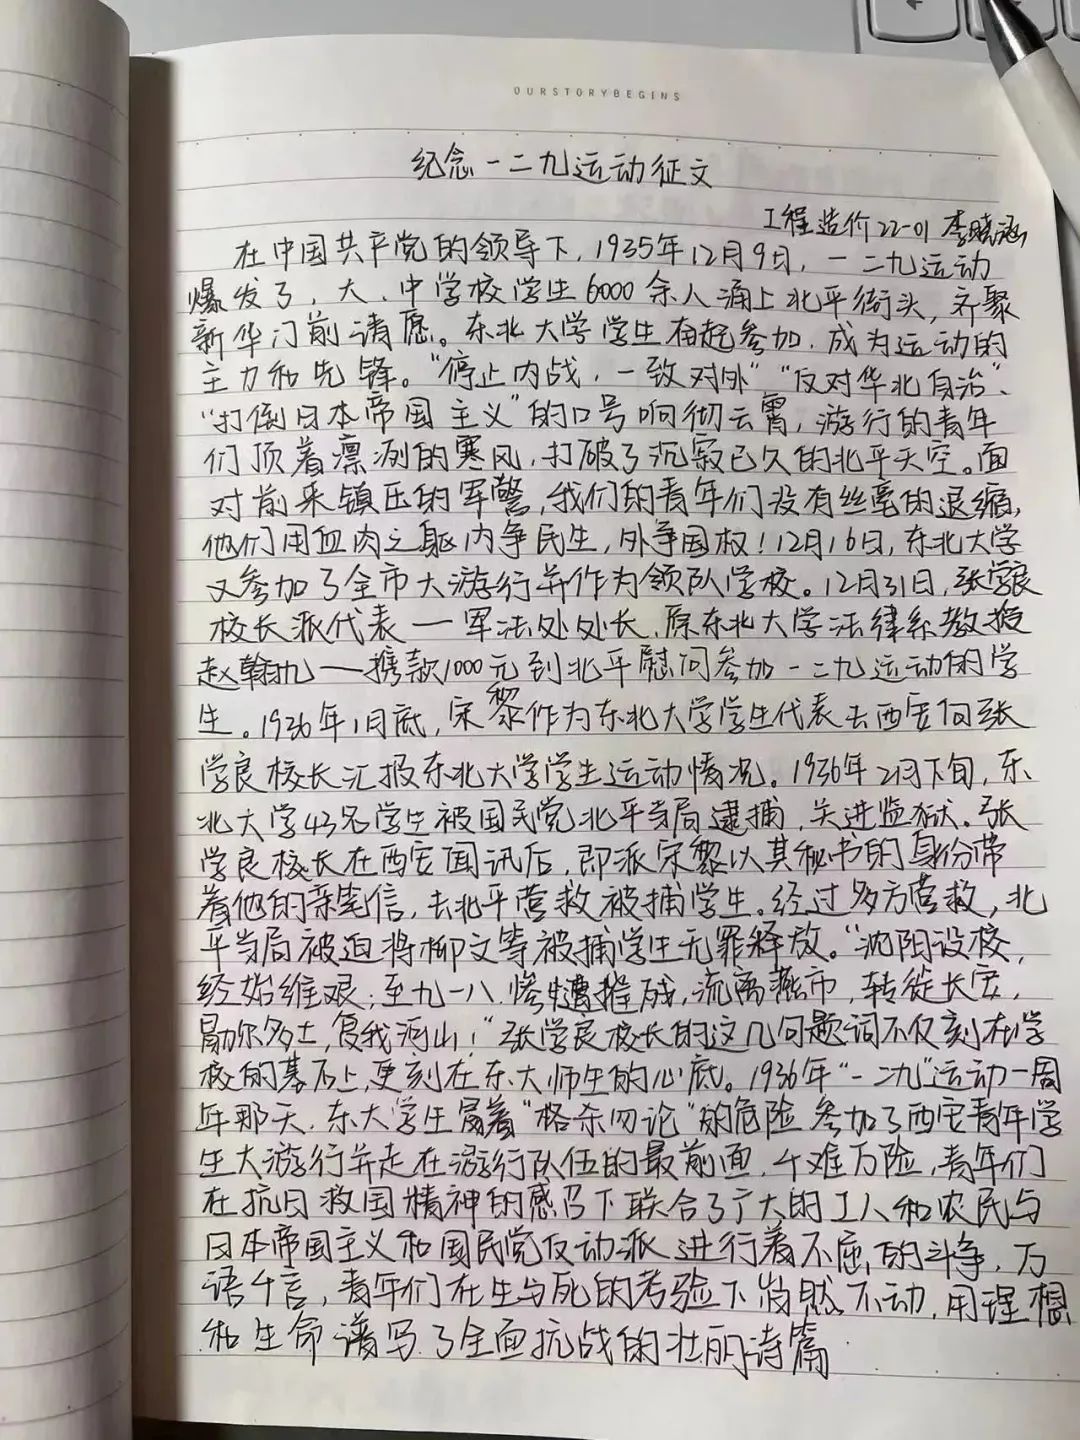 OURSTORYBEGINS
纪念一二九运动征文
工程造价22-01 李晓涵
在中国共产党的领导下,1935年12月9日,一二九运动
爆发了,大、中学校学生6000余人涌上北平街头,齐聚
新华门前请愿。东北大学学生奋起参加,成为运动的
主力和先锋。“停止内战,一致对外”“反对华北自治”、
“打倒日本帝国主义”的口号响彻云霄,游行的青年
们顶着凛冽的寒风,打破了沉寂已久的北平天空。面
对前来镇压的军警,我们的青年们没有丝毫的退缩,
他们用血肉之躯内争民生,外争国权!12月16日,东北大学
又参加了全市大游行并作为领队学校。12月31日,张学良
校长派代表——军法处处长、原东北大学法律系教授
赵翰九——携款1000元到北平慰问参加一二九运动的学
生。1936年1月底,宋黎作为东北大学学生代表去西安向张
学良校长汇报东北大学学生运动情况。1936年2月下旬,东
北大学43名学生被国民党北平当局逮捕,关进监狱。张
学良校长在西安闻讯后,即派宋黎以其秘书的身份带
着他的亲笔信,去北平营救被捕学生。经过多方营救,北
平当局被迫将柳文等被捕学生无罪释放。“沈阳设校,
经始维艰;至九一八,惨遭摧残,流离燕市,转徙长安,
勖尔多士,复我河山!”张学良校长的这几句题词不仅刻在学
校的基石上,更刻在东大师生的心底。1936年“一二九”运动一周
年那天,东大学生冒着“格杀勿论”的危险参加了西安青年学
生大游行并走在游行队伍的最前面,千难万险,青年们
在抗日救国精神的感召下联合了广大的工人和农民与
日本帝国主义和国民党反动派进行着不屈的斗争,万
语千言,青年们在生与死的考验下岿然不动,用理想
和生命谱写了全面抗战的壮丽诗篇.